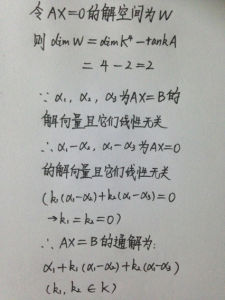 令 AX=0的解空间为W
则 dim W = dim K⁴ - rank A
= 4 - 2 = 2
∵ α₁, α₂, α₃ 为AX=B的
解向量且它们线性无关
∴ α₁-α₂, α₁-α₃ 为AX=0
的解向量且它们线性无关
(k₁(α₁-α₂)+k₂(α₁-α₃)=0
→k₁=k₂=0)
∴ AX=B的通解为:
α₁+k₁(α₁-α₂)+k₂(α₁-α₃)
(k₁, k₂ ∈ K)